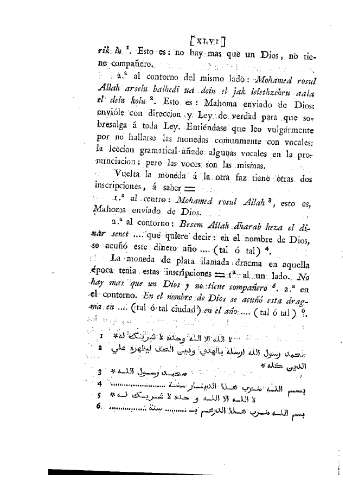 [XLVI]
rik lu ². Esto es: no hay mas que un Dios, no tie-
ne compañero.
2.º al contorno del mismo lado: Mohamed rosul
Allah arselu balhedi ua dein el jak leletkzehru aala
el dein kolu ². Esto es: Mahoma enviado de Dios:
envióle con direccion y Ley de verdad para que so-
bresalga á toda Ley. Entiéndase que leo vulgármente
por no hallarse las monedas comunmente con vocales:
la leccion gramatical añade algunas vocales en la pro-
nunciacion: pero las voces son las mismas.
Vuelta la moneda á la otra faz tiene otras dos
inscripciones, á saber =
1.º al centro: Mohamed rosul Allah ³, esto es,
Mahoma enviado de Dios.
2.º al contorno: Besem Allah dharab heza el di-
nár senet .... que quiere decir: en el nombre de Dios,
se acuñó este dinero año .... (tal ó tal) ⁴.
La moneda de plata llamada dracma en aquella
época tenia estas inscripciones = 1.ª al un lado. No
hay mas que un Dios y no tiene compañero ⁵. 2.ª en
el contorno. En el nombre de Dios se acuñó esta drag-
ma en .... (tal ó tal ciudad) en el año .... (tal ó tal) ⁶.
1 لا اله الا الله وحده لا شريك له *
2 محمد رسول الله ارسله بالهدي ودين الحق ليظهره علي
الدين كله *
3 محمد رسول الله *
4 بسم الله ضرب هذا الدينار سنة ................
5 لا اله الا الله و حده لا شريك له *
6 بسم الله ضرب هذا الدرهم بـ ...... سنة ................